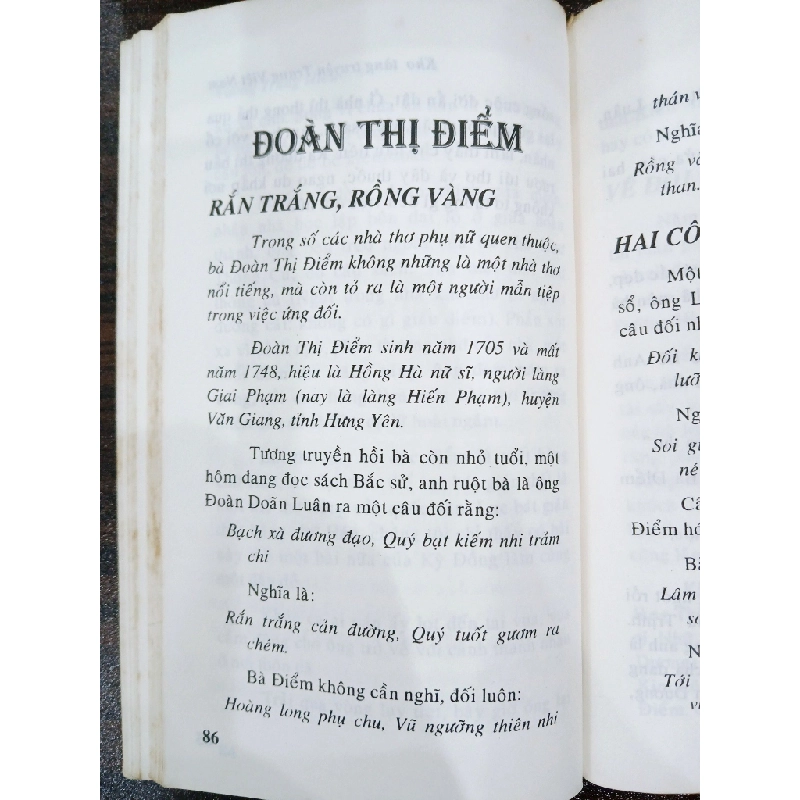 ĐOÀN THỊ ĐIỂM
RẮN TRẮNG, RỒNG VÀNG
Trong số các nhà thơ phụ nữ quen thuộc,
bà Đoàn Thị Điểm không những là một nhà thơ
nổi tiếng, mà còn tỏ ra là một người mẫn tiệp
trong việc ứng đối.
Đoàn Thị Điểm sinh năm 1705 và mất
năm 1748, hiệu là Hồng Hà nữ sĩ, người làng
Giai Phạm (nay là làng Hiến Phạm), huyện
Văn Giang, tỉnh Hưng Yên.
Tương truyền hồi bà còn nhỏ tuổi, một
hôm đang đọc sách Bắc sử, anh ruột bà là ông
Đoàn Doãn Luân ra một câu đối rằng:
Bạch xà đương đạo, Quý bạt kiếm nhi trảm
chi
Nghĩa là:
Rắn trắng cản đường, Quý tuốt gươm ra
chém.
Bà Điểm không cần nghĩ, đối luôn:
Hoàng long phụ chu, Vũ ngưỡng thiên nhi
86
thán v
Nghĩa
Rồng và
than.
HAI CÔ
Một
sổ, ông L
câu đối nh
Đối k
lưỡ
Ng
Soi g
né
Câ
Điểm hó
Bà
Lâm
so
N
Tới
v